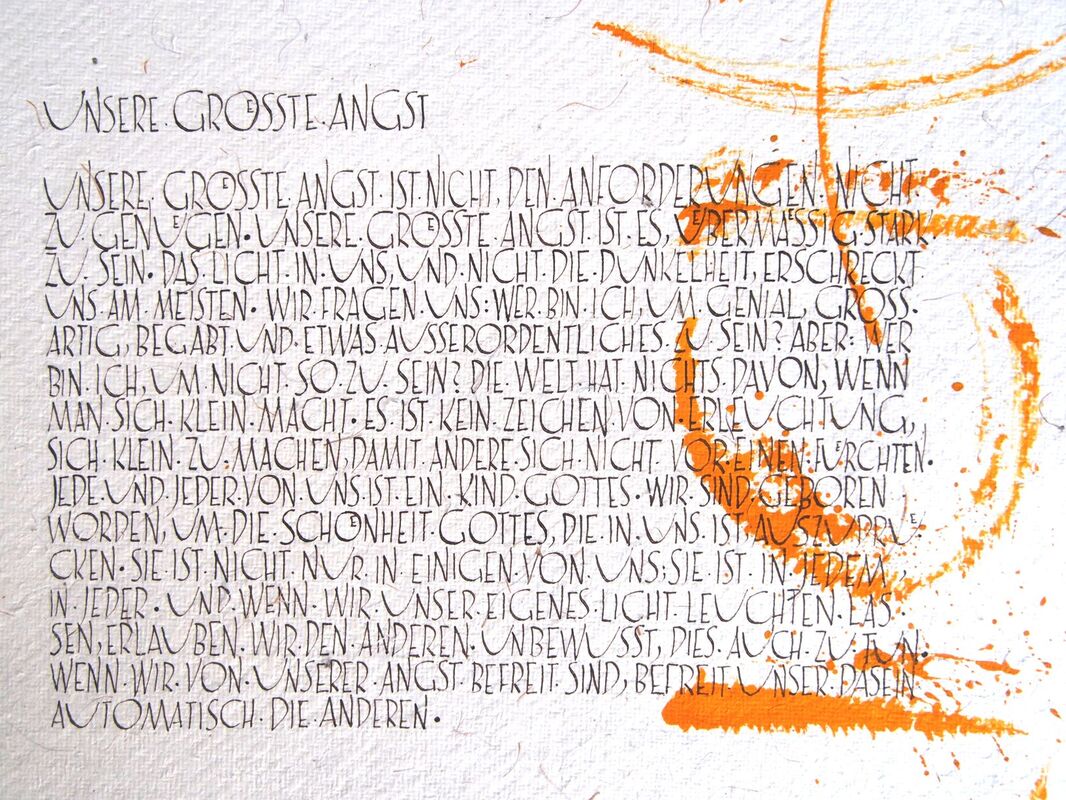 UNSERE·GRÖSSTE·ANGST
UNSERE·GRÖSSTE ANGST·IST·NICHT, DEN·ANFORDERUNGEN·NICHT
ZU·GENÜGEN·UNSERE·GRÖSSTE ANGST·IST·ES, ÜBERMÄSSIG·STARK
ZU·SEIN·DAS·LICHT·IN·UNS, UND·NICHT·DIE·DUNKELHEIT, ERSCHRECKT
UNS·AM·MEISTEN·WIR·FRAGEN·UNS: WER·BIN·ICH, UM·GENIAL, GROSS-
ARTIG, BEGABT·UND·ETWAS·AUSSERORDENTLICHES·ZU·SEIN? ABER: WER
BIN·ICH, UM·NICHT·SO·ZU·SEIN? DIE·WELT·HAT·NICHTS·DAVON, WENN
MAN·SICH·KLEIN·MACHT·ES·IST·KEIN·ZEICHEN·VON·ERLEUCHTUNG,
SICH·KLEIN·ZU·MACHEN, DAMIT·ANDERE·SICH·NICHT·VOR·EINEN·FÜRCHTEN·
JEDE·UND·JEDER·VON·UNS·IST·EIN·KIND·GOTTES·WIR·SIND·GEBOREN
WORDEN, UM·DIE·SCHÖNHEIT·GOTTES, DIE·IN·UNS·IST·AUSZUDRÜ-
CKEN·SIE·IST·NICHT·NUR·IN·EINIGEN·VON·UNS; SIE·IST·IN·JEDEM,
IN·JEDER·UND·WENN·WIR·UNSER·EIGENES·LICHT·LEUCHTEN·LAS-
SEN, ERLAUBEN·WIR·DEN·ANDEREN·UNBEWUSST, DIES·AUCH·ZU·TUN·
WENN·WIR·VON·UNSERER·ANGST·BEFREIT·SIND, BEFREIT·UNSER·DASEIN
AUTOMATISCH·DIE·ANDEREN·